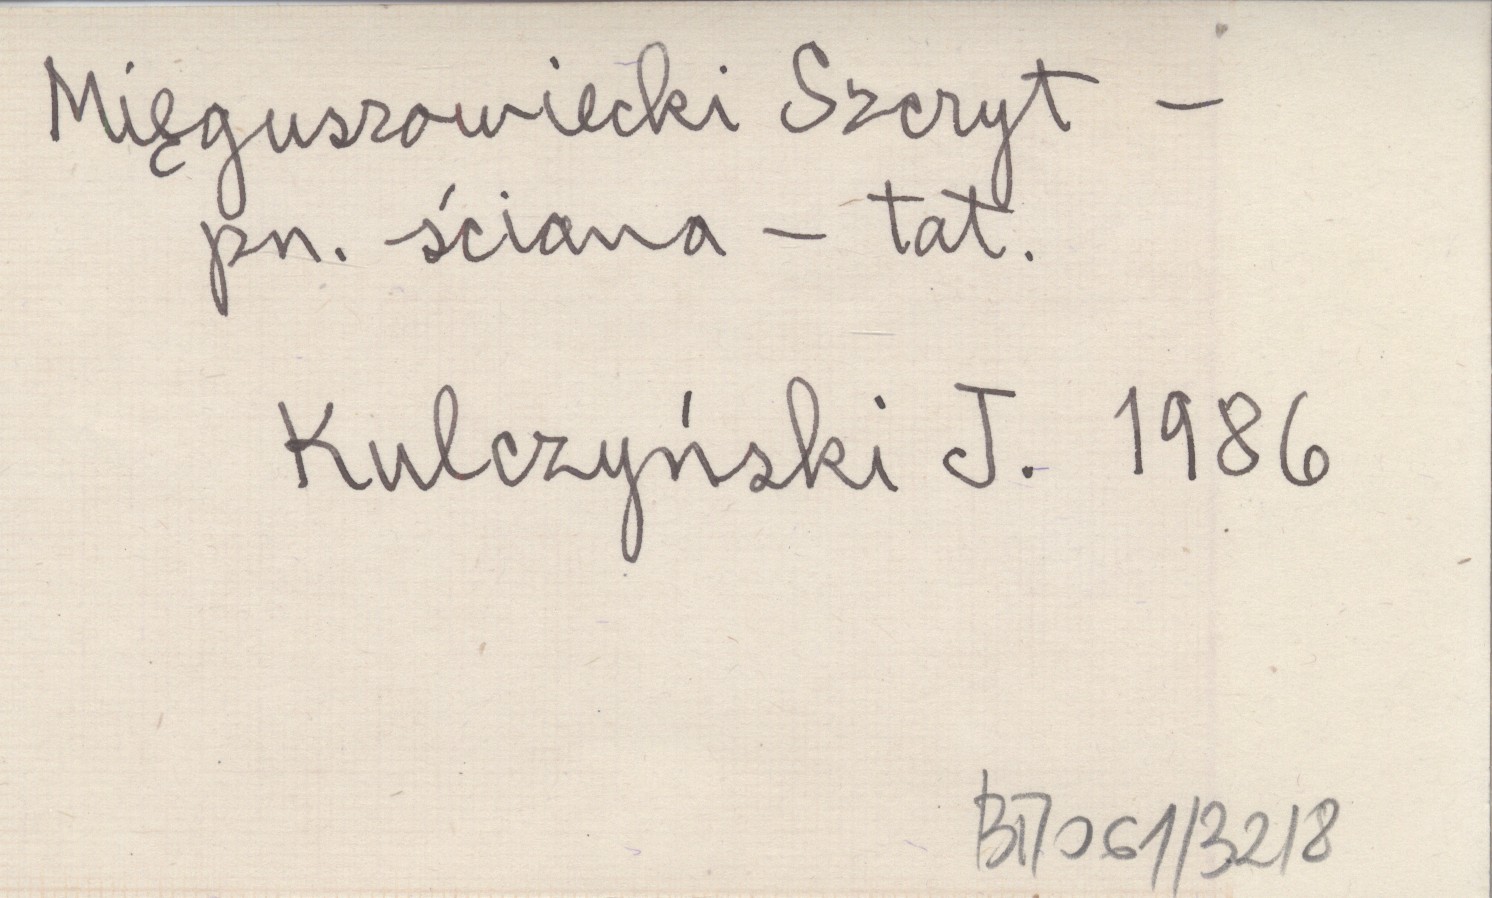 Mięguszowiecki Szczyt —
pn. ściana — tat.
Kulczyński J. 1986